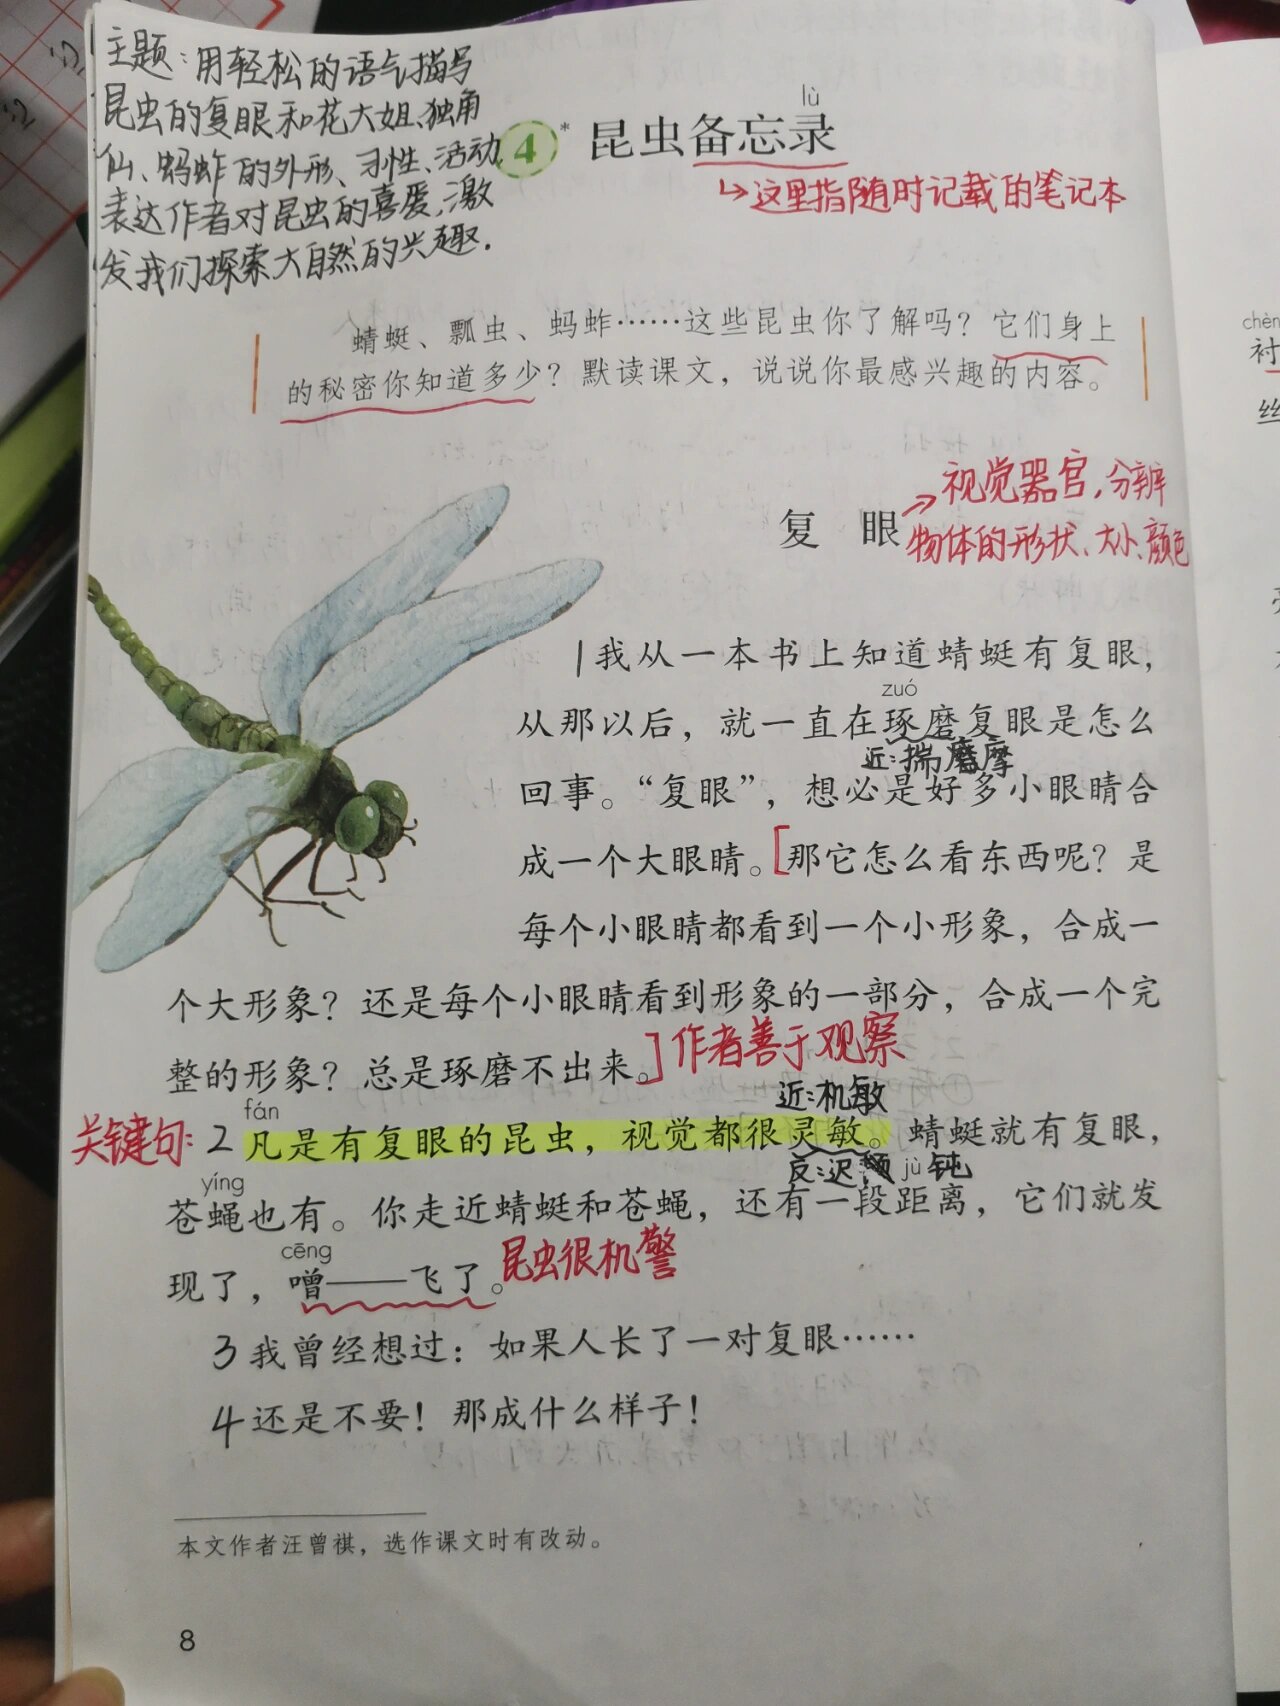 主题:用轻松的语气描写
昆虫的复眼和花大姐、独角
仙、蚂蚱的外形、习性、活动,
表达作者对昆虫的喜爱,激
发我们探索大自然的兴趣.
lù
4* 昆虫备忘录
↳这里指随时记载的笔记本
蜻蜓、瓢虫、蚂蚱……这些昆虫你了解吗?它们身上
的秘密你知道多少?默读课文,说说你最感兴趣的内容。
复 眼
→视觉器官,分辨
物体的形状、大小、颜色
1我从一本书上知道蜻蜓有复眼,
zuó
从那以后,就一直在琢磨复眼是怎么
近:揣磨摩
回事。“复眼”,想必是好多小眼睛合
成一个大眼睛。[那它怎么看东西呢?是
每个小眼睛都看到一个小形象,合成一
个大形象?还是每个小眼睛看到形象的一部分,合成一个完
整的形象?总是琢磨不出来。]作者善于观察
fán
近:机敏
关键句:2凡是有复眼的昆虫,视觉都很灵敏。蜻蜓就有复眼,
yíng
反:迟 钝
jù
苍蝇也有。你走近蜻蜓和苍蝇,还有一段距离,它们就发
cēng
现了,噌——飞了。昆虫很机警
3我曾经想过:如果人长了一对复眼……
4还是不要!那成什么样子!
本文作者汪曾祺,选作课文时有改动。
8
chèn
衬
丝